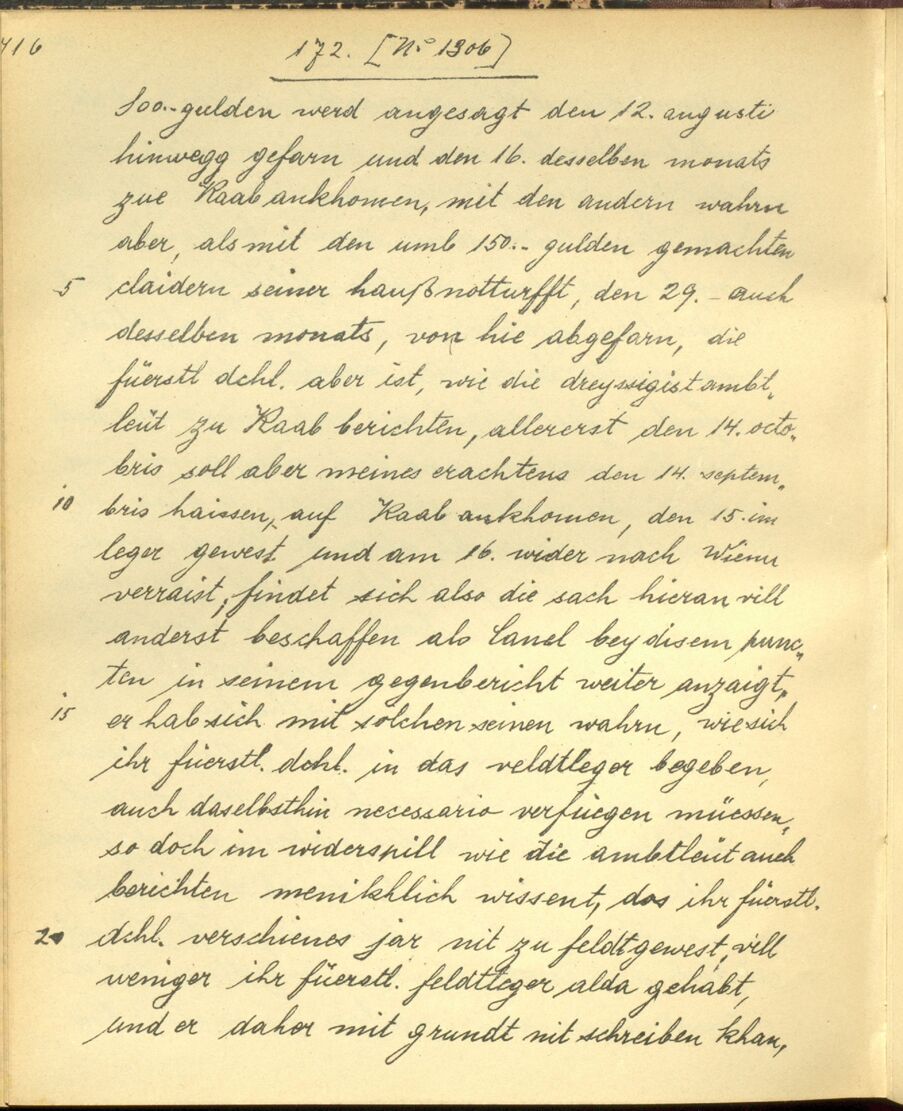 416
172. [No 1306]
800.- gulden werd angesagt den 12. augusti
hinwegg gefarn und den 16. desselben monats
zue Raab ankhomen, mit den andern wahrn
aber, als mit den umb 150.- gulden gemachten
5 claidern seiner haußnotturfft, den 29.- auch
desselben monats, von hie abgefarn, die
füerstl dchl. aber ist, wie die dreyssigistambt„
leüt zu Raab berichten, allererst den 14. octo„
bris soll aber meines erachtens den 14. septem„
10 bris haissen, auf Raab ankhomen, den 15. im
leger gewest und am 16. wider nach Wienn
verraist, findet sich also die sach hieran vill
anderst beschaffen als Canel bey disem punc„
ten in seinem gegenbericht weiter anzaigt,
15 er hab sich mit solchen seinen wahrn, wie sich
ihr füerstl. dchl. in das veldtleger begeben,
auch daselbsthin necessario verfüegen müessen,
so doch im widerspill wie die ambtleüt auch
berichten menikhlich wissent, das ihr füerstl.
20 dchl. verschienes jar nit zu feldt gewest, vill
weniger ihr füerstl. feldtleger alda gehabt,
und er daher mit grundt nit schreiben khan,